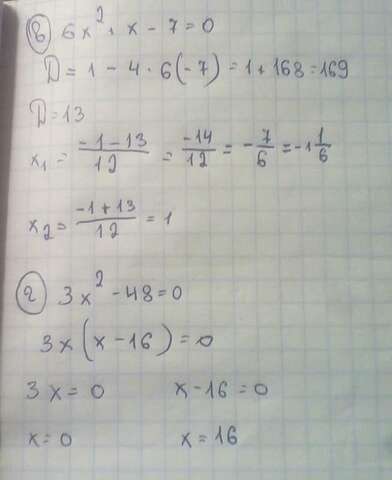 в) 6x² + x - 7 = 0
D = 1 - 4 · 6(-7) = 1 + 168 = 169
D = 13
x₁ = \frac{-1-13}{12} = \frac{-14}{12} = -\frac{7}{6} = -1\frac{1}{6}
x₂ = \frac{-1+13}{12} = 1
г) 3x² - 48 = 0
3x(x - 16) = 0
3x = 0 x - 16 = 0
x = 0 x = 16